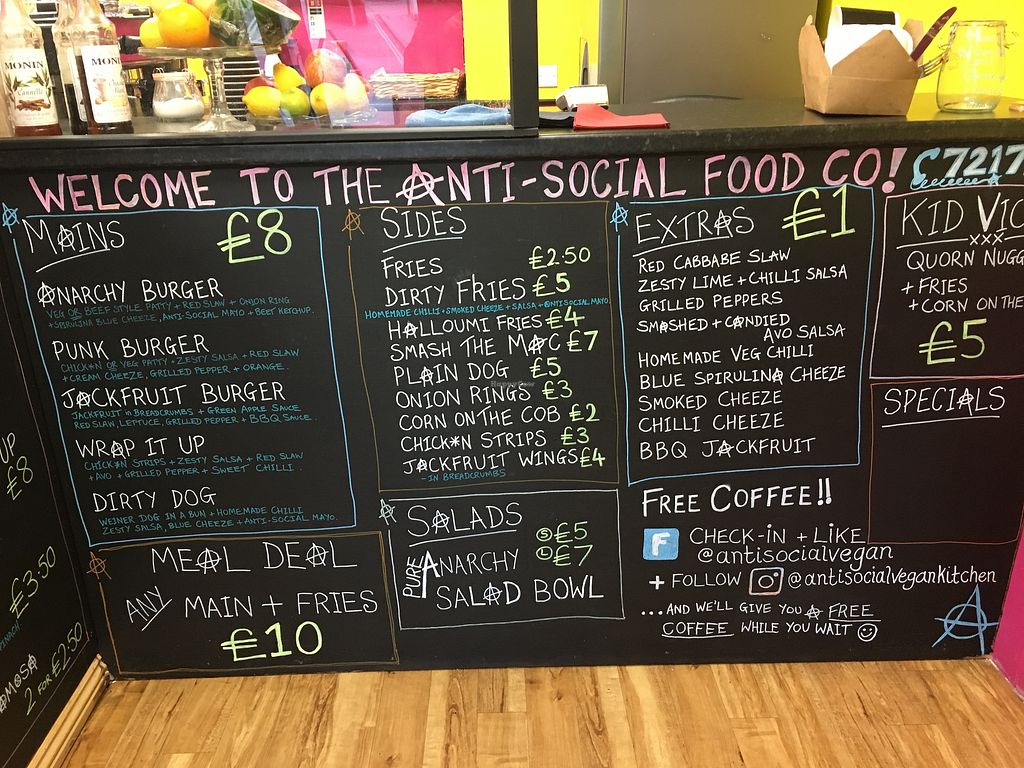 MONIN
MONIN
WELCOME TO THE ANTI-SOCIAL FOOD CO!
7217
MAINS £8
ANARCHY BURGER
VEG OR BEEF STYLE PATTY + RED SLAW + ONION RING
+ SPIRULINA BLUE CHEEZE, ANTI-SOCIAL MAYO + BEET KETCHUP.
PUNK BURGER
CHICK*N OR VEG PATTY + ZESTY SALSA + RED SLAW
+ CREAM CHEEZE, GRILLED PEPPER + ORANGE.
JACKFRUIT BURGER
JACKFRUIT in BREADCRUMBS + GREEN APPLE SAUCE
RED SLAW, LETTUCE, GRILLED PEPPER + B.B.Q SAUCE.
WRAP IT UP
CHICK*N STRIPS + ZESTY SALSA + RED SLAW
+ AVO + GRILLED PEPPER + SWEET CHILLI.
DIRTY DOG
WEINER DOG IN A BUN + HOMEMADE CHILLI
ZESTY SALSA, BLUE CHEEZE + ANTI-SOCIAL MAYO.
MEAL DEAL
ANY MAIN + FRIES
£10
SIDES
FRIES £2.50
DIRTY FRIES £5
HOMEMADE CHILLI + SMOKED CHEEZE + SALSA + ANTISOCIAL MAYO.
HALLOUMI FRIES £4
SMASH THE MAC £7
PLAIN DOG £5
ONION RINGS £3
CORN ON THE COB £2
CHICK*N STRIPS £3
JACKFRUIT WINGS £4
- IN BREADCRUMBS
SALADS
S £5
PURE ANARCHY L £7
SALAD BOWL
EXTRAS £1
RED CABBABE SLAW
ZESTY LIME + CHILLI SALSA
GRILLED PEPPERS
SMASHED + CANDIED
AVO SALSA
HOMEMADE VEG CHILLI
BLUE SPIRULINA CHEEZE
SMOKED CHEEZE
CHILLI CHEEZE
BBQ JACKFRUIT
FREE COFFEE!!
F CHECK-IN + LIKE
@antisocialvegan
+ FOLLOW @antisocialvegankitchen
...AND WE'LL GIVE YOU A FREE
COFFEE WHILE YOU WAIT
KID VIC
XXX
QUORN NUGG
+ FRIES
+ CORN ON THE
£5
SPECIALS
UP
£8
£3.50
2 FOR £2.50